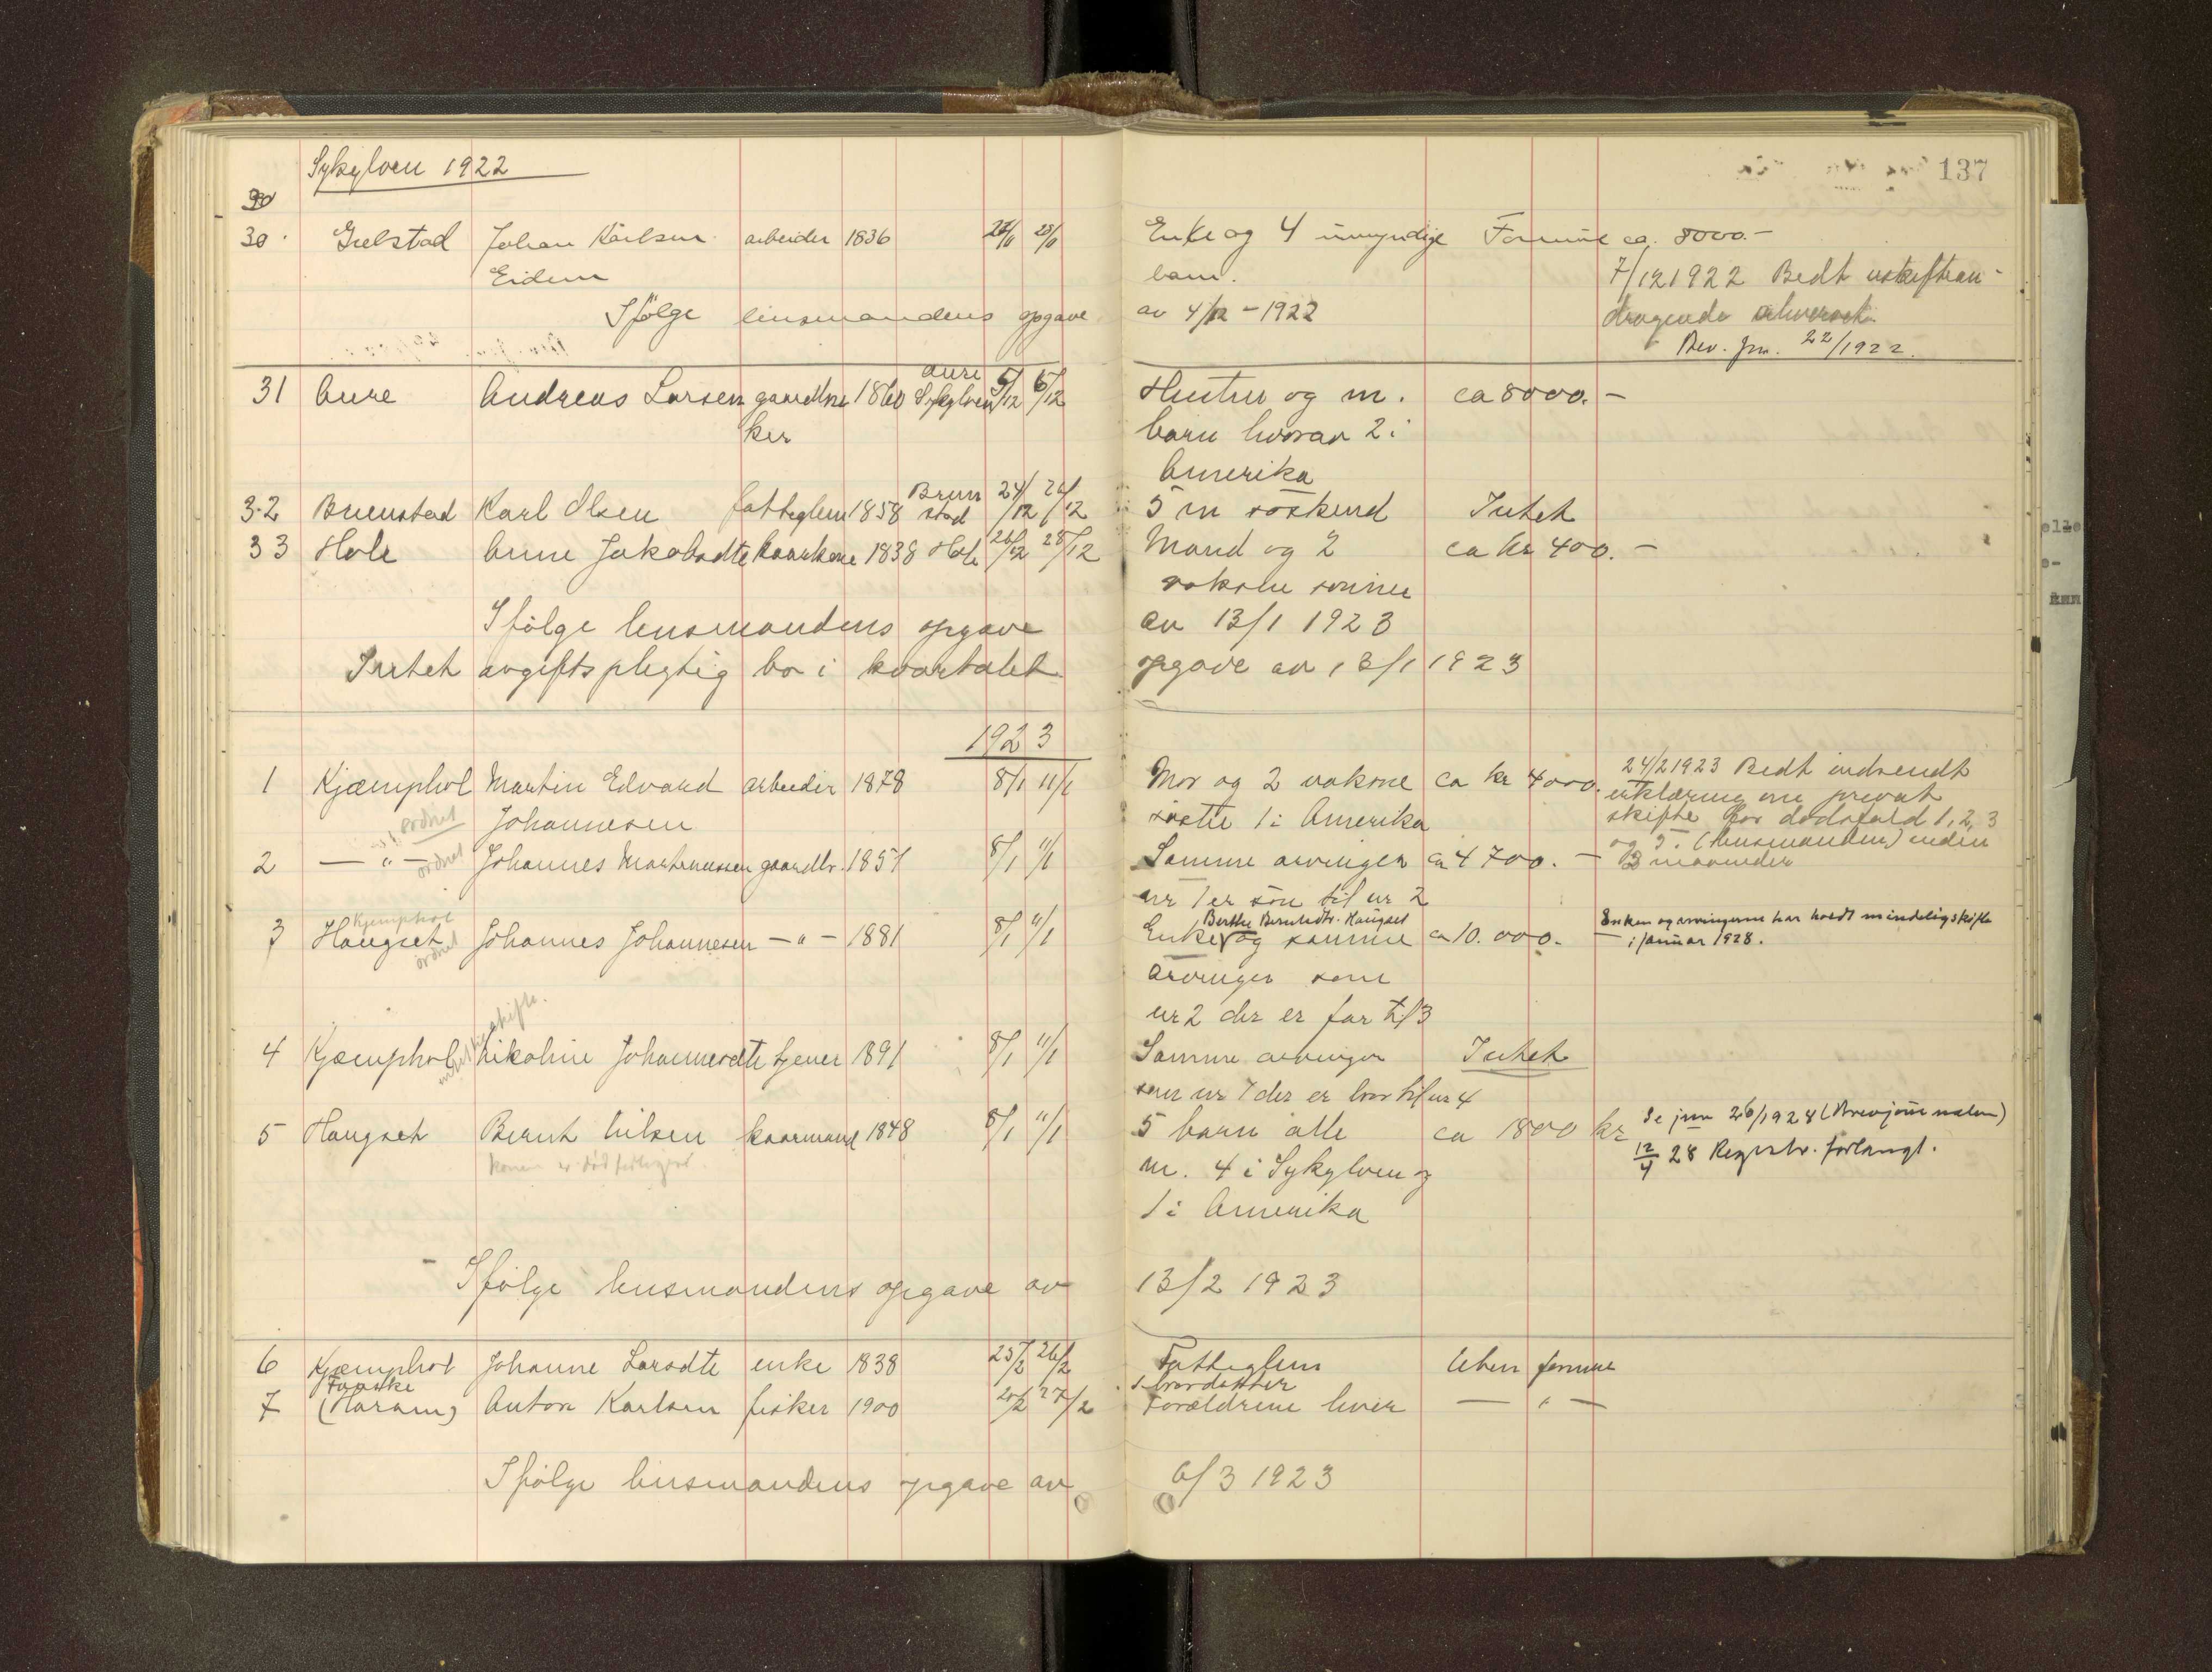 Sykylven 1922
137
30 Gjelstad Johan Karlsen arbeider 1836 Enke og 4 umyndige Formue ca. 8000.-
Eidem barn. 7/12 1922 Bedt uskiftean-
Ifølge lensmandens opgave av 4/12 - 1922 dragende
Brev. jrn. 22/1922.
Aure
31 Aure Andreas Larsen gaardbru 1860 Sykylven 5/12 6/12 Hustru og m. ca 8000.-
ker barn hvorav 2 i
Amerika
Brun 24/12 26/12
32 Brunstad Karl Olsen fattiglem 1858 stad 5 m søskend Intet
33 Hole Anne Jakobsdte kaarkone 1838 Hole 26/12 28/12 Mand og 2 ca kr 400.-
voksne sønner
Ifølge lensmandens opgave av 13/1 1923
Intet avgiftspligtig bo i kvartalet. opgave av 13/1 1923
1923
1 Kjæmphol Martin Edvard arbeider 1878 8/1 11/1 Mor og 2 voksne ca kr 4000. 24/2 1923 Bedt indsendt
erklæring om privat
ordnet Johannesen søstre 1 i Amerika skifte for dødsfald 1, 2, 3
og 5. (lensmanden) inden
2 — " — ordnet Johannes Martinussen gaardbr. 1851 8/1 11/1 Samme arvinger ca 4700.- 3 maaneder
nr 1 er søn til nr 2
Kjemphol Berthe Berntsdtr. Haugset Enken og arvingerne har holdt mindelig skifte
3 Haugset ordnet Johannes Johannesen — " — 1881 8/1 11/1 Enke og samme ca 10.000.- i januar 1928.
arvinger som
nr 2 der er far til 3
4 Kjæmphol Nikoline Johannesdte tjener 1891 8/1 11/1 Samme arvinger Intet
som nr 1 der er bror til nr 4
5 Haugset Bernt Nilsen kaarmand 1848 8/1 11/1 5 barn alle ca 1800 kr Se jrn 26/1928 (Brevjournalen)
konen er død m. 4 i Sykylven og 12/4 28 Registr. forlangt.
1 i Amerika
Ifølge lensmandens opgave av 13/2 1923
6 Kjæmphol Johanne Larsdte enke 1838 25/2 26/2 Fattiglem Uten formue
brordatter
7 (Haram) Anton Karlsen fisker 1900 20/2 27/2 Forældrene lever — " —
Ifølge lensmandens opgave av 6/3 1923